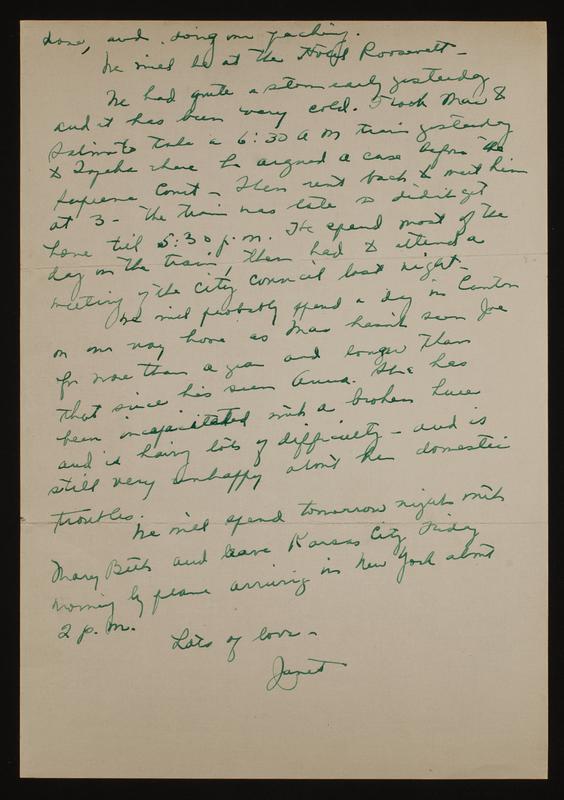 done, and doing our packing.
We will be at the Hotel Roosevelt –
We had quite a storm early yesterday
and it has been very cold. I took Max to
to take a 6:30 A M train yesterday
to Topeka where he argued a case before the
Supreme Court – then went back to meet him
at 3 – The train was late so didn't get
home till 5:30 p.m. He spend most of the
day on the train, then had to attend a
meeting of the City Council last night –
We will probably spend a day in Canton
on our way home as Max hasn't seen Joe
for more than a year and longer than
that since he's seen Anna. She has
been incapacitated with a broken knee
and is having lots of difficulty – and is
still very unhappy about her domestic
troubles.
We will spend tomorrow night with
Mary and leave Kansas City Friday
morning by plane arriving in New York about
2 p.m.
Lots of love –
Janet